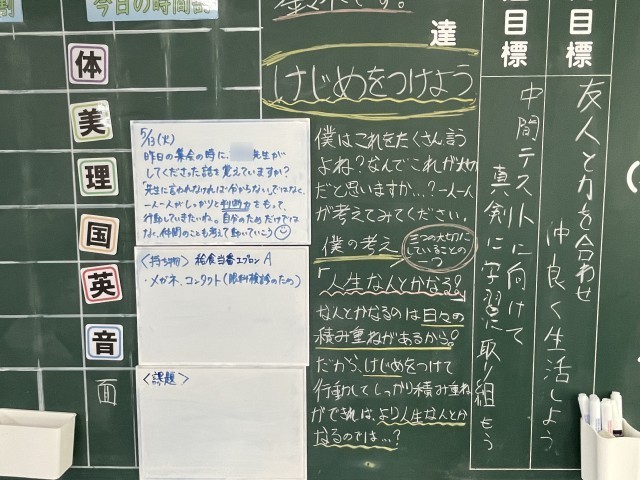 今日の時間
体
美
理
国
英
音
面
5/13(火)
昨日の集会の時に、
先生が
してくださった話を覚えていますか？
先生に言われなければ分からない。ではなく、
一人一人がしっかりと判断力をもって、
行動していきたいね。自分のためだけでは
なく、仲間のことも考えて動いていこう
<持ち物> 給食当番エプロン A
・メガネ、コンタクト(眼科検診のため)
<課題>
です。
達
けじめをつけよう
僕はこれをたくさん言う
よね？なんでこれが大切
だと思いますか…？一人一人
が考えてみてください。
僕の考え
三つの大切に
していることの
一つ
「人生なんとかなる。」
なんとかなるのは日々の
積み重ねがあるから。
だから、けじめをつけて
行動してしっかり積み重ね
ができれば、より人生なんとか
なるのでは…？
目標
中間テストに向けて
真剣に学習に取り組もう
目標
友人と力を合わせ
仲良く生活しよう